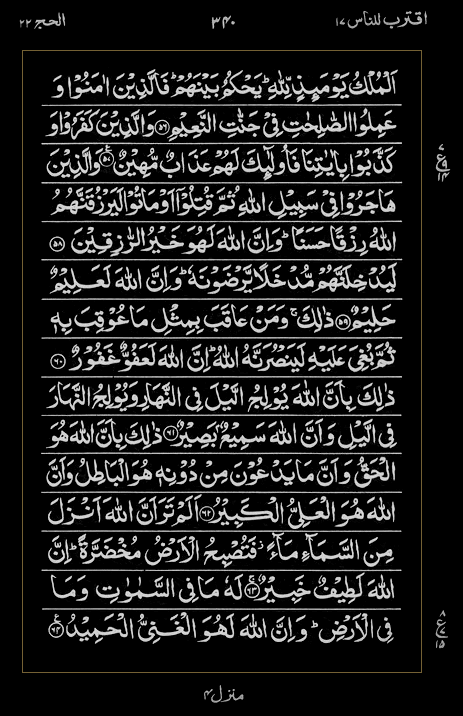 اقترب للناس ١٧
٣٤٠
الحج ٢٢
اَلْمُلْكُ يَوْمَىِٕذٍ لِّلّٰهِؕ یَحْكُمُ بَیْنَهُمْؕ فَالَّذِیْنَ اٰمَنُوْا وَ
عَمِلُوا الصّٰلِحٰتِ فِیْ جَنّٰتِ النَّعِیْمِ ﴿۵۶﴾ وَالَّذِیْنَ كَفَرُوْا وَ
كَذَّبُوْا بِاٰیٰتِنَا فَاُولٰٓىِٕكَ لَهُمْ عَذَابٌ مُّهِیْنٌ ﴿۵۷﴾ وَالَّذِیْنَ
هَاجَرُوْا فِیْ سَبِیْلِ اللّٰهِ ثُمَّ قُتِلُوْۤا اَوْ مَاتُوْا لَیَرْزُقَنَّهُمُ
اللّٰهُ رِزْقًا حَسَنًاؕ وَاِنَّ اللّٰهَ لَهُوَ خَیْرُ الرّٰزِقِیْنَ ﴿۵۸﴾
لَیُدْخِلَنَّهُمْ مُّدْخَلًا یَّرْضَوْنَهٗؕ وَاِنَّ اللّٰهَ لَعَلِیْمٌ
حَلِیْمٌ ﴿۵۹﴾ ذٰلِكَۚ وَمَنْ عَاقَبَ بِمِثْلِ مَا عُوْقِبَ بِهٖ
ثُمَّ بُغِیَ عَلَیْهِ لَیَنْصُرَنَّهُ اللّٰهُؕ اِنَّ اللّٰهَ لَعَفُوٌّ غَفُوْرٌ ﴿۶۰﴾
ذٰلِكَ بِاَنَّ اللّٰهَ یُوْلِجُ الَّیْلَ فِی النَّهَارِ وَیُوْلِجُ النَّهَارَ
فِی الَّیْلِ وَاَنَّ اللّٰهَ سَمِیْعٌۢ بَصِیْرٌ ﴿۶۱﴾ ذٰلِكَ بِاَنَّ اللّٰهَ هُوَ
الْحَقُّ وَاَنَّ مَا یَدْعُوْنَ مِنْ دُوْنِهٖ هُوَ الْبَاطِلُ وَاَنَّ
اللّٰهَ هُوَ الْعَلِیُّ الْكَبِیْرُ ﴿۶۲﴾ اَلَمْ تَرَ اَنَّ اللّٰهَ اَنْزَلَ
مِنَ السَّمَآءِ مَآءً٘ فَتُصْبِحُ الْاَرْضُ مُخْضَرَّةًؕ اِنَّ
اللّٰهَ لَطِیْفٌ خَبِیْرٌ ﴿۶۳﴾ لَهٗ مَا فِی السَّمٰوٰتِ وَمَا
فِی الْاَرْضِؕ وَاِنَّ اللّٰهَ لَهُوَ الْغَنِیُّ الْحَمِیْدُ ﴿۶۴﴾
٧
ع
١٤
٨
ع
٧
١٥
منزل ٤